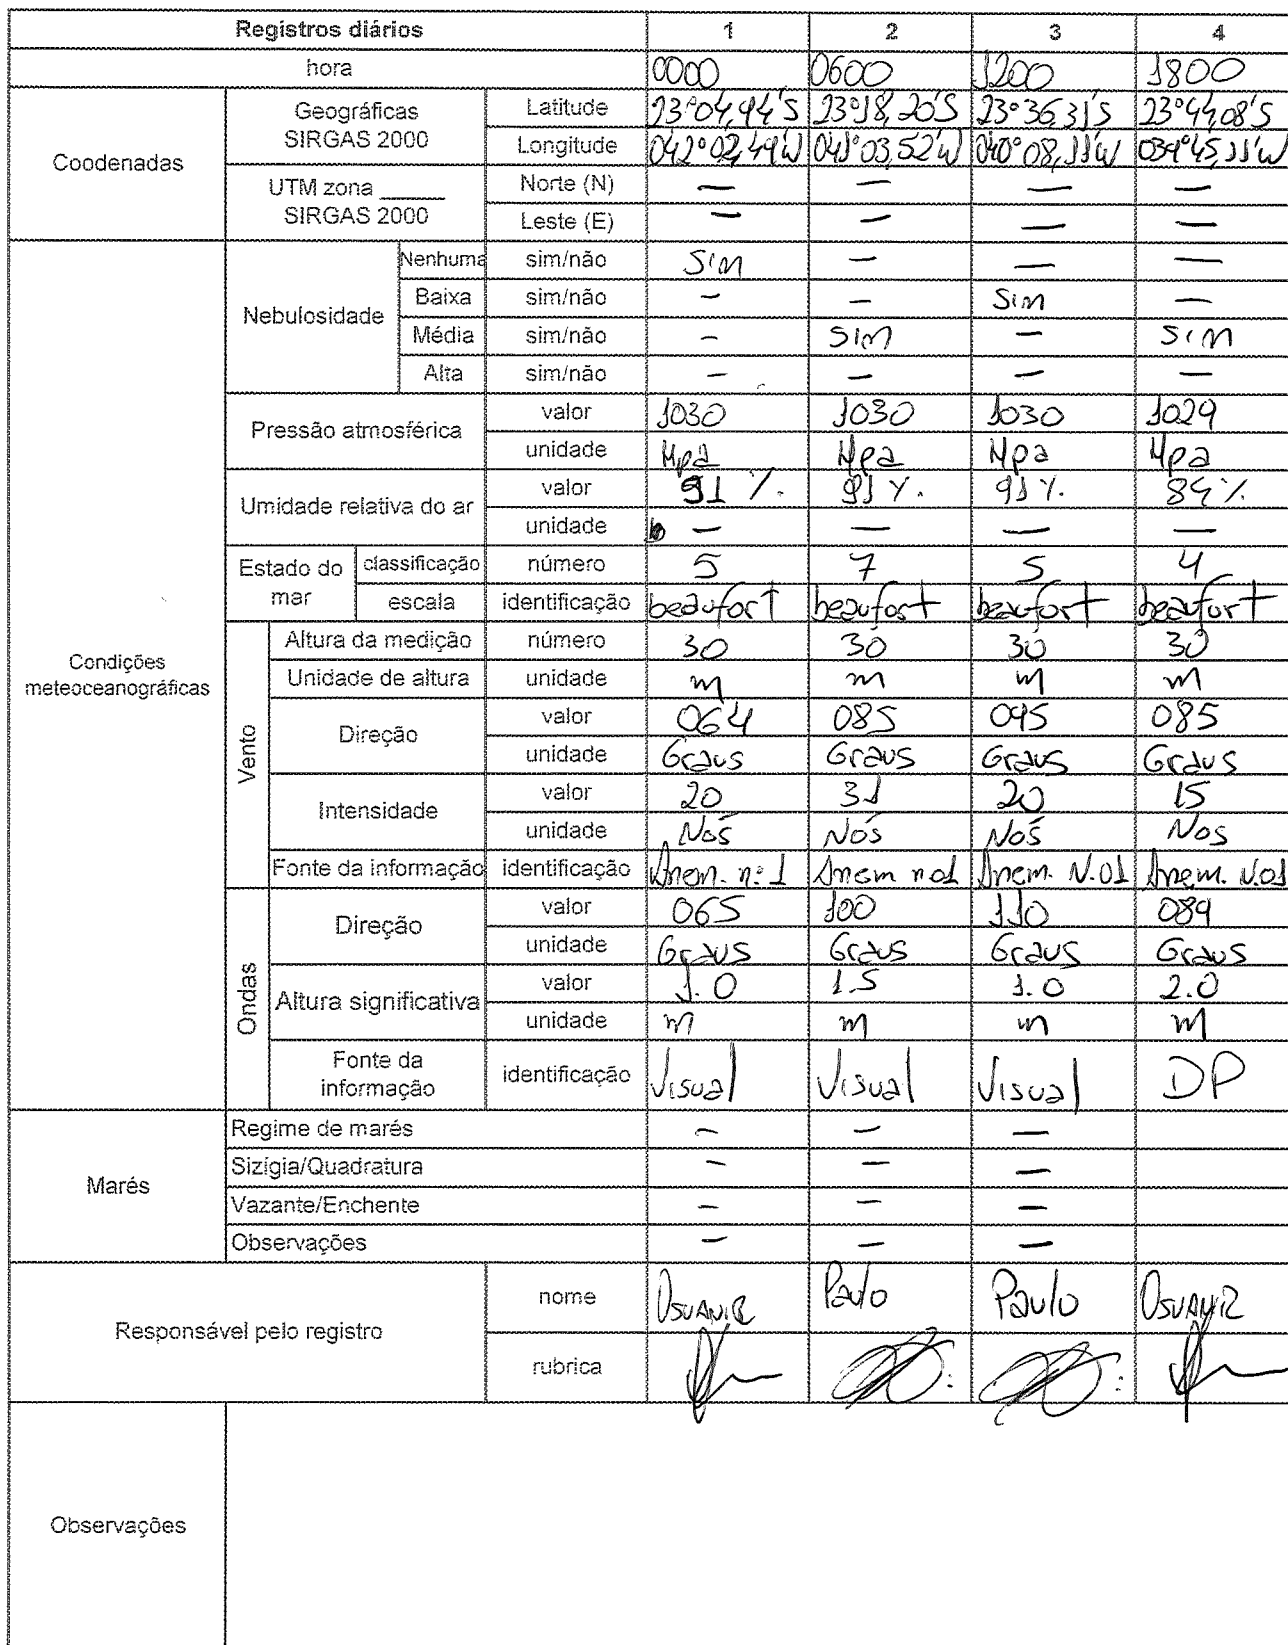 Registros diários 1 2 3 4
hora 0000 0600 1200 1800
Coodenadas
Geográficas
SIRGAS 2000
Latitude 23°04,94'S 23°18,20'S 23°36,31'S 23°44,08'S
Longitude 042°02,49'W 041°03,52'W 040°08,11'W 039°45,11'W
UTM zona _____
SIRGAS 2000
Norte (N) — — — —
Leste (E) — — — —
Condições
meteoceanográficas
Nebulosidade
Nenhuma sim/não Sim — — —
Baixa sim/não — — Sim —
Média sim/não — Sim — Sim
Alta sim/não — — — —
Pressão atmosférica
valor 1030 1030 1030 1029
unidade Hpa Hpa Hpa Hpa
Umidade relativa do ar
valor 91 % 91 % 91 % 84 %
unidade — — — —
Estado do
mar
classificação número 5 7 5 4
escala identificação beaufort beaufort beaufort beaufort
Vento
Altura da medição número 30 30 30 30
Unidade de altura unidade m m m m
Direção
valor 064 085 095 085
unidade Graus Graus Graus Graus
Intensidade
valor 20 31 20 15
unidade Nós Nós Nós Nos
Fonte da informação identificação Anem. n.º 1 Anem n 01 Anem. N.01 Anem. N.01
Ondas
Direção
valor 065 100 110 089
unidade Graus Graus Graus Graus
Altura significativa
valor 1.0 1.5 1.0 2.0
unidade m m m m
Fonte da
informação
identificação Visual Visual Visual DP
Marés
Regime de marés — — —
Sizígia/Quadratura — — —
Vazante/Enchente — — —
Observações — — —
Responsável pelo registro
nome Paulo Paulo
rubrica
Observações